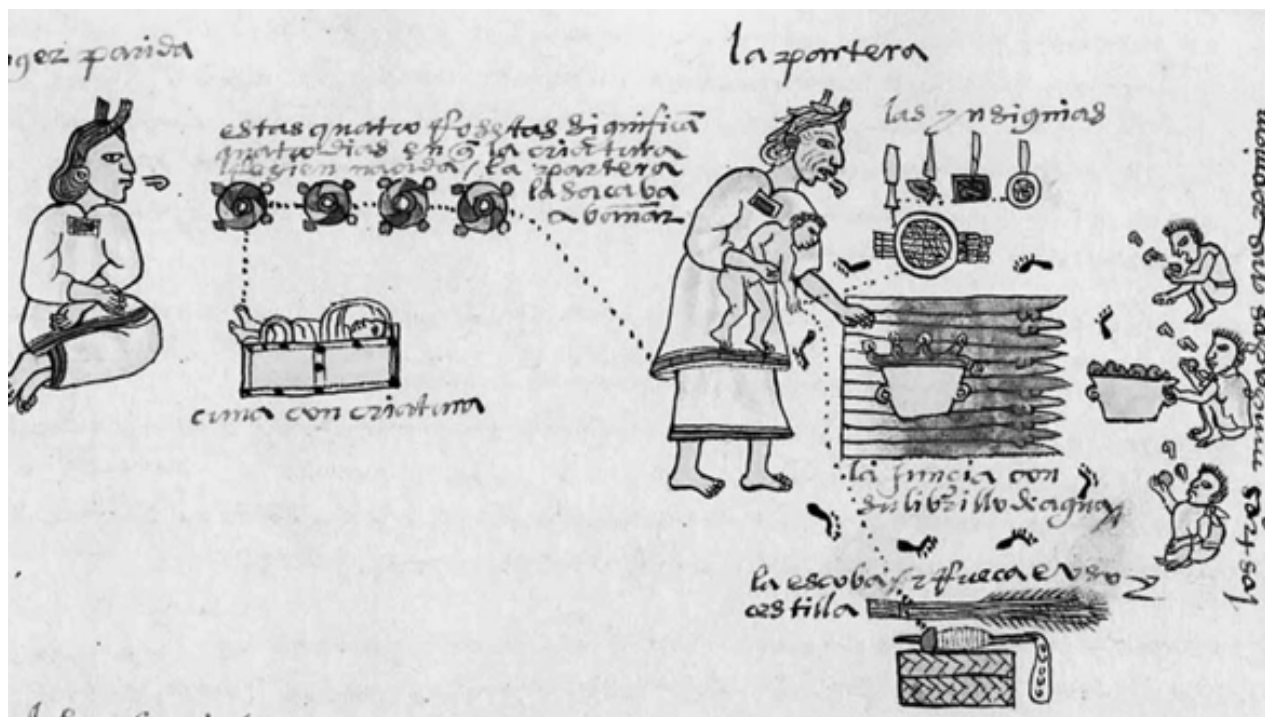 parida
la partera
estas quatro rrosetas significā
quatro dias en q̄ la criatura
rezien naçida / la partera
la sacaba
a bañar
las ynsignias
cuna con criatura
la juncia con
su librillo de agua
la escoba / rrueca e uso
çestilla